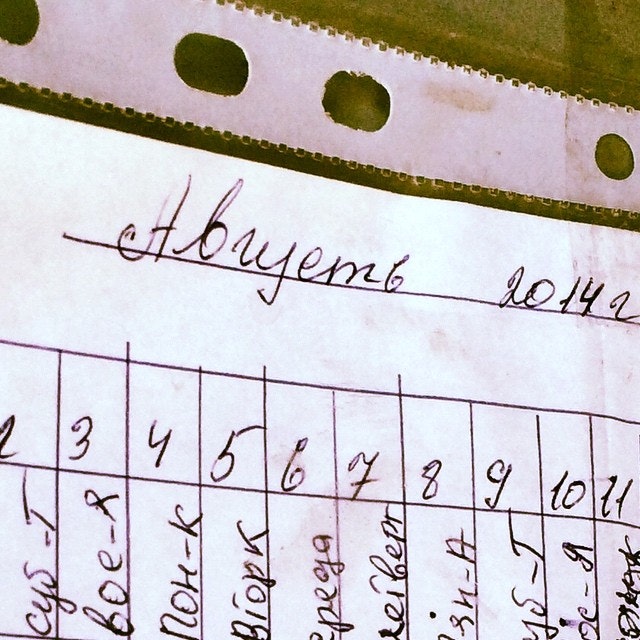 Августь 2014г
2 3 4 5 6 7 8 9 10 11
суб-Т вос-Я Пон-К Вторк среда четверг суб-Т